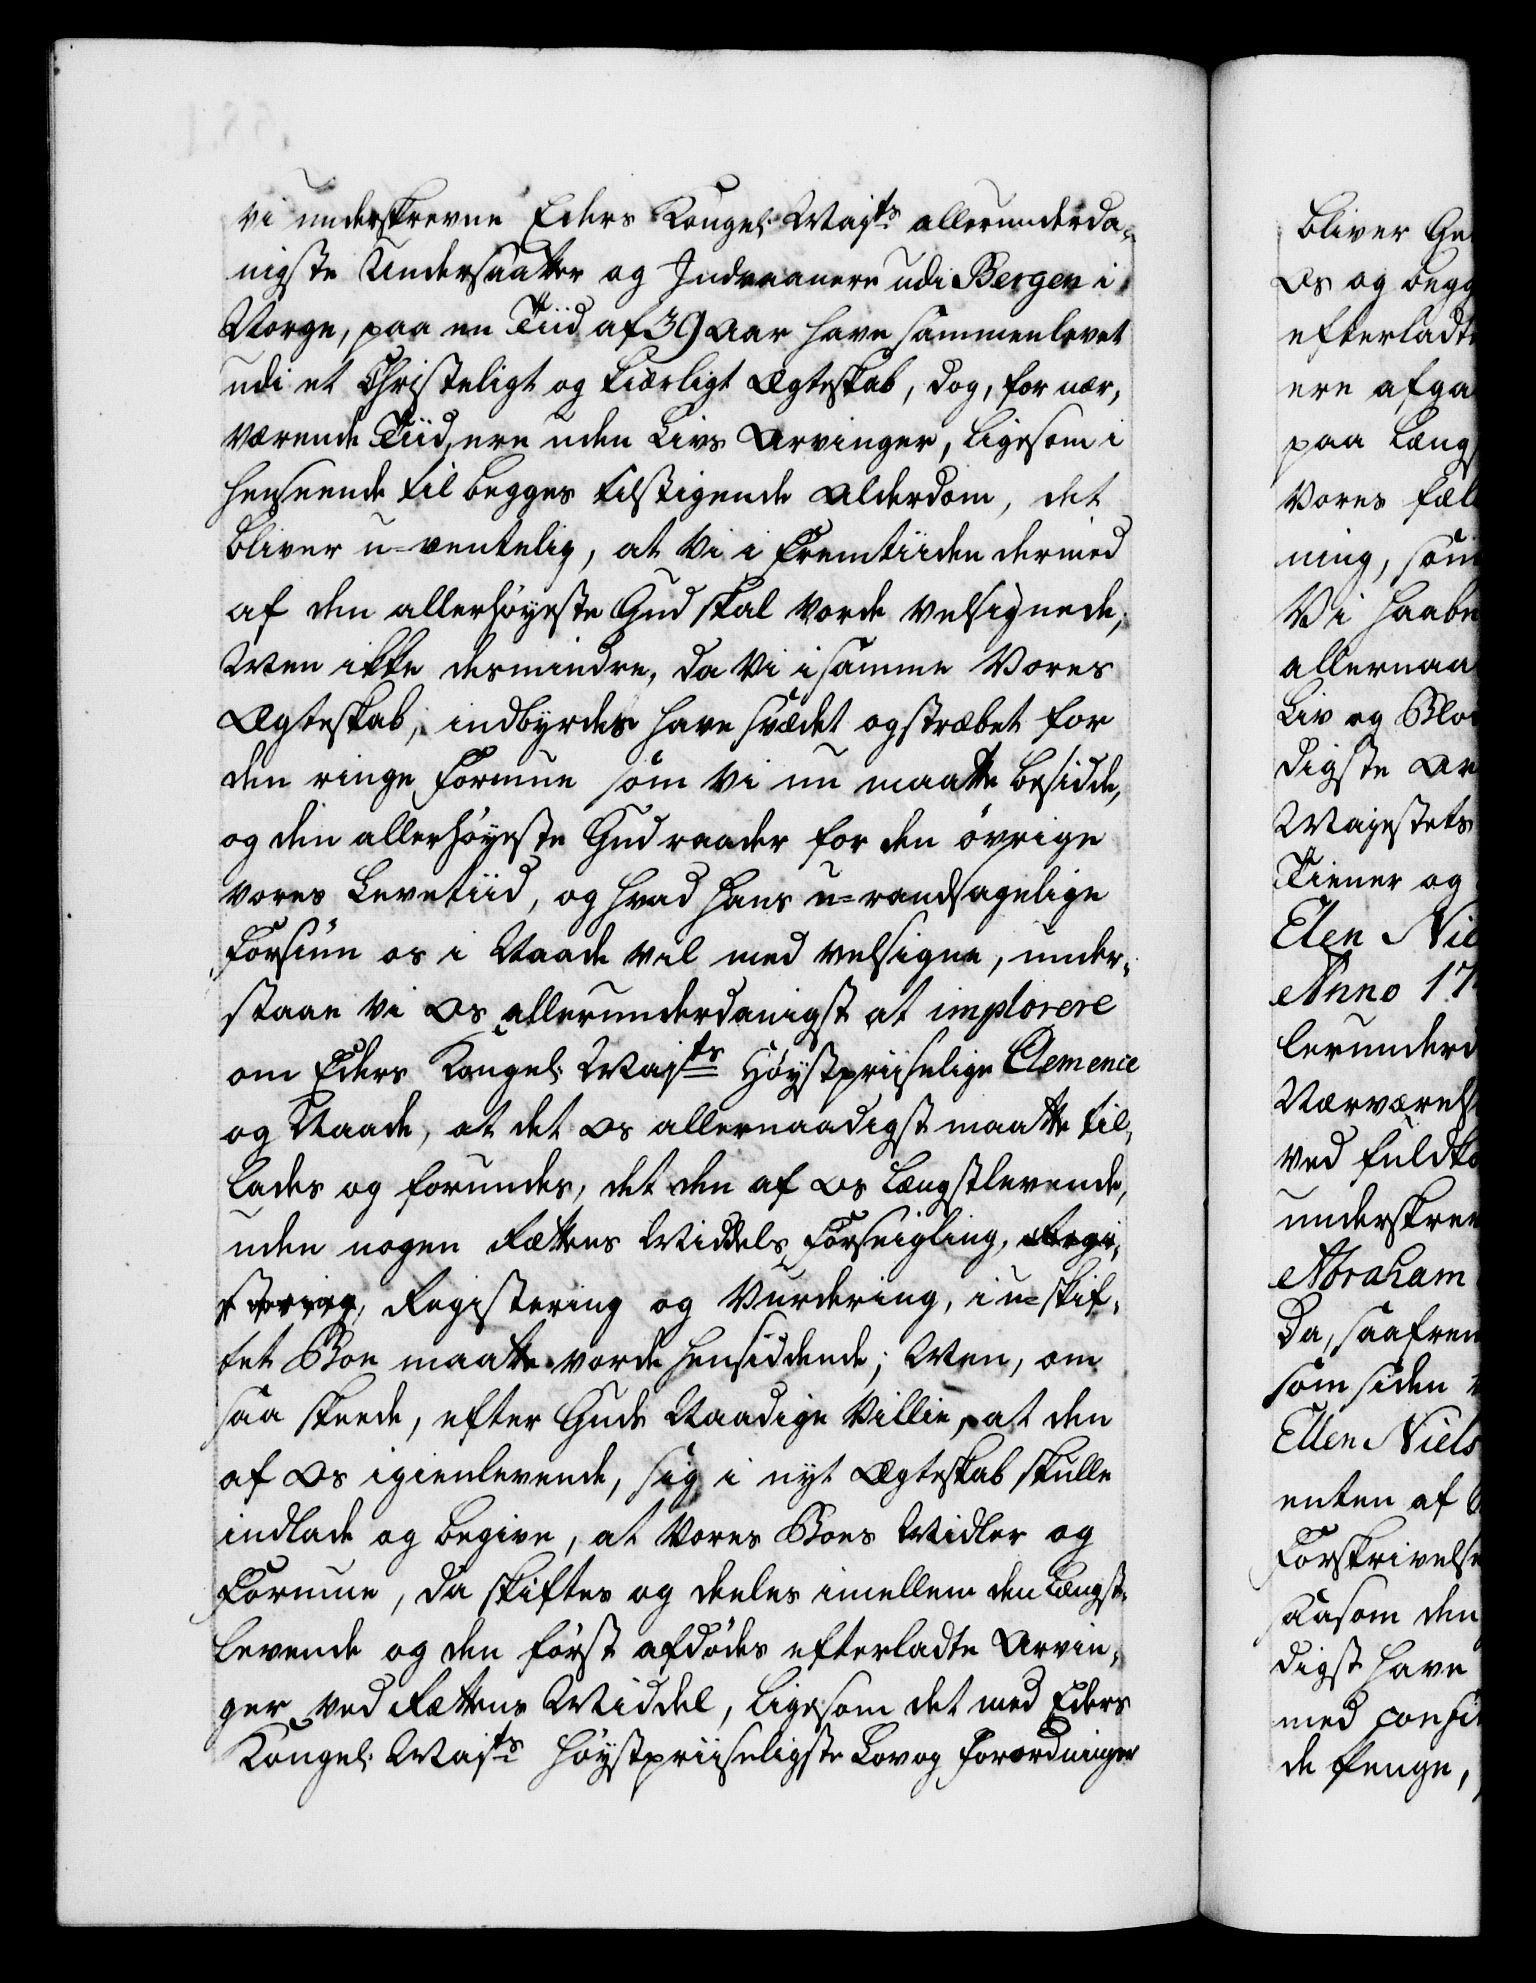 vi underskrevne Eders Kongel: Maj:ts allerunderda-
nigste Undersaatter og Indvaanere udi Bergen i
Norge, paa en Tiid af 39 Aar have sammenlevet
udi et Christeligt og kiærligt Ægteskab, dog, for nær-
værende Tiid, ere uden Livs Arvinger, ligesom i
henseende til begges tilstigende Alderdom, det
bliver u-ventelig, at Vi i Fremtiiden dermed
af den allerhøyeste Gud skal vorde velsignede;
Men ikke desmindre, da Vi i samme Vores
Ægteskab, indbyrdes have svædet og stræbet for
den ringe Formue som Vi nu maatte besidde,
og den allerhøyeste Gud raader for den øvrige
vores Levetiid, og hvad Hans u-randsagelige
Forsiun os i Naade vil med velsigne, under-
staae Vi Os allerunderdanigst at implorere
om Eders Kongel: Maj:ts Høystpriiselige Clemence
og Naade, at det Os allernaadigst maatte til-
lades og forundes, det den af Os Længstlevende,
uden nogen Rættens Middels Forseigling, Regi-
stering, Registering og Vurdering, i u-skif-
tet Boe maatte vorde hensiddende; Men, om
saa skeede, efter Guds Naadige Villie, at den
af Os igienlevende, sig i nyt Ægteskab skulle
indlade og begive, at Vores Boes Midler og
Formue, da skiftes og deeles imellem den Længst-
levende og den først afdødes efterladte Arvin-
ger ved Rættens Middel, ligesom det med Eders
Kongel: Maj:ts Høystpriiseligste Lov og Forordninger
bliver
Os og begg
efterladt
ere afga
paa Læng
Vores fæl
ning, som
Vi haabe
allernaa
Liv og Blo
digste Ar
Majestets
Tiener og
Elen Nie
Anno 17
lerunderd
Nærværels
ved fuldko
underskrev
Abraham
Da, saafrem
som siden
Ellen Niels
enten af
Forskrivelse
saasom den
digst have
med
de penge,